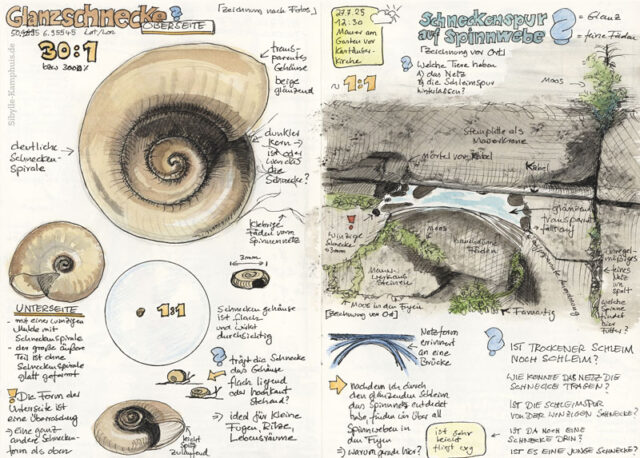 Glanzschnecke?
OBERSEITE
[Zeichnung nach Fotos]
Lat/Lon
30:1
bzw 3000%
Sibylle-Kamphuis.de
trans-
parentes
Gehäuse
beige
glänzend
deutliche
Schnecken-
spirale
dunkler
Kern →
ist oder
war das
die
Schnecke?
Klebrige
Fäden vom
Spinnennetz
3mm
1:1
UNTERSEITE
- mit einer winzigen
Mulde mit
Schneckenspirale
- der große äußere
Teil ist ohne
Schneckenspirale
glatt geformt
! Die Form der
Unterseite ist
eine Überraschung
⇒ eine ganz
andere Schnecken-
form als oben
Schneckengehäuse
ist flach
und wirkt
durchsichtig
? trägt die Schnecke
das Gehäuse
flach liegend
oder hochkant
stehend?
⇒ ideal für kleine
Fugen, Ritze,
Lebensräume
leicht
spitz
zulaufend
12:30
Mauer am
Garten vor
Kartäuser-
kirche
Schneckenspur
auf Spinnwebe
? = Glanz
= feine Fäden
[Zeichnung vor Ort]
~ 1:1
? Welche Tiere haben
A) das Netz
B) die Schleimspur
hinterlassen?
Moos
Steinplatte als
Mauerkrone
Mörtel vor Kabel
Kabel
! winzige
Schnecke
~3mm
Moos
glänzend
transparent
Mauer-
werk aus
Steinen
Moos in den Fugen
[Zeichnung vor Ort]
Netzform
erinnert
an eine
Brücke
nachdem ich durch
den glänzenden Schleim
das Spinnnetz entdeckt
habe, finde ich über all
Spinnweben in
den Fugen
⇒ warum gerade hier?
ist sehr
leicht
fliegt weg
? IST TROCKENER SCHLEIM
NOCH SCHLEIM?
WIE KONNTE DAS NETZ DIE
SCHNECKE TRAGEN?
IST DIE SCHLEIMSPUR
VON DER WINZIGEN SCHNECKE?
IST DA NOCH EINE
SCHNECKE DRIN?
IST ES EINE JUNGE SCHNECKE?